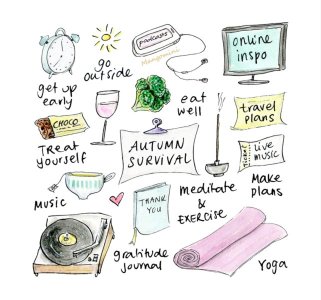 podcasts
online
inspo
go
outside
get up
early
eat
well
travel
plans
CHOCO
TREAT
yourself
AUTUMN
SURVIVAL
TICKET
LIVE
MUSIC
Make
plans
Music
THANK
YOU
meditate
&
EXERCISE
gratitude
journal
Yoga